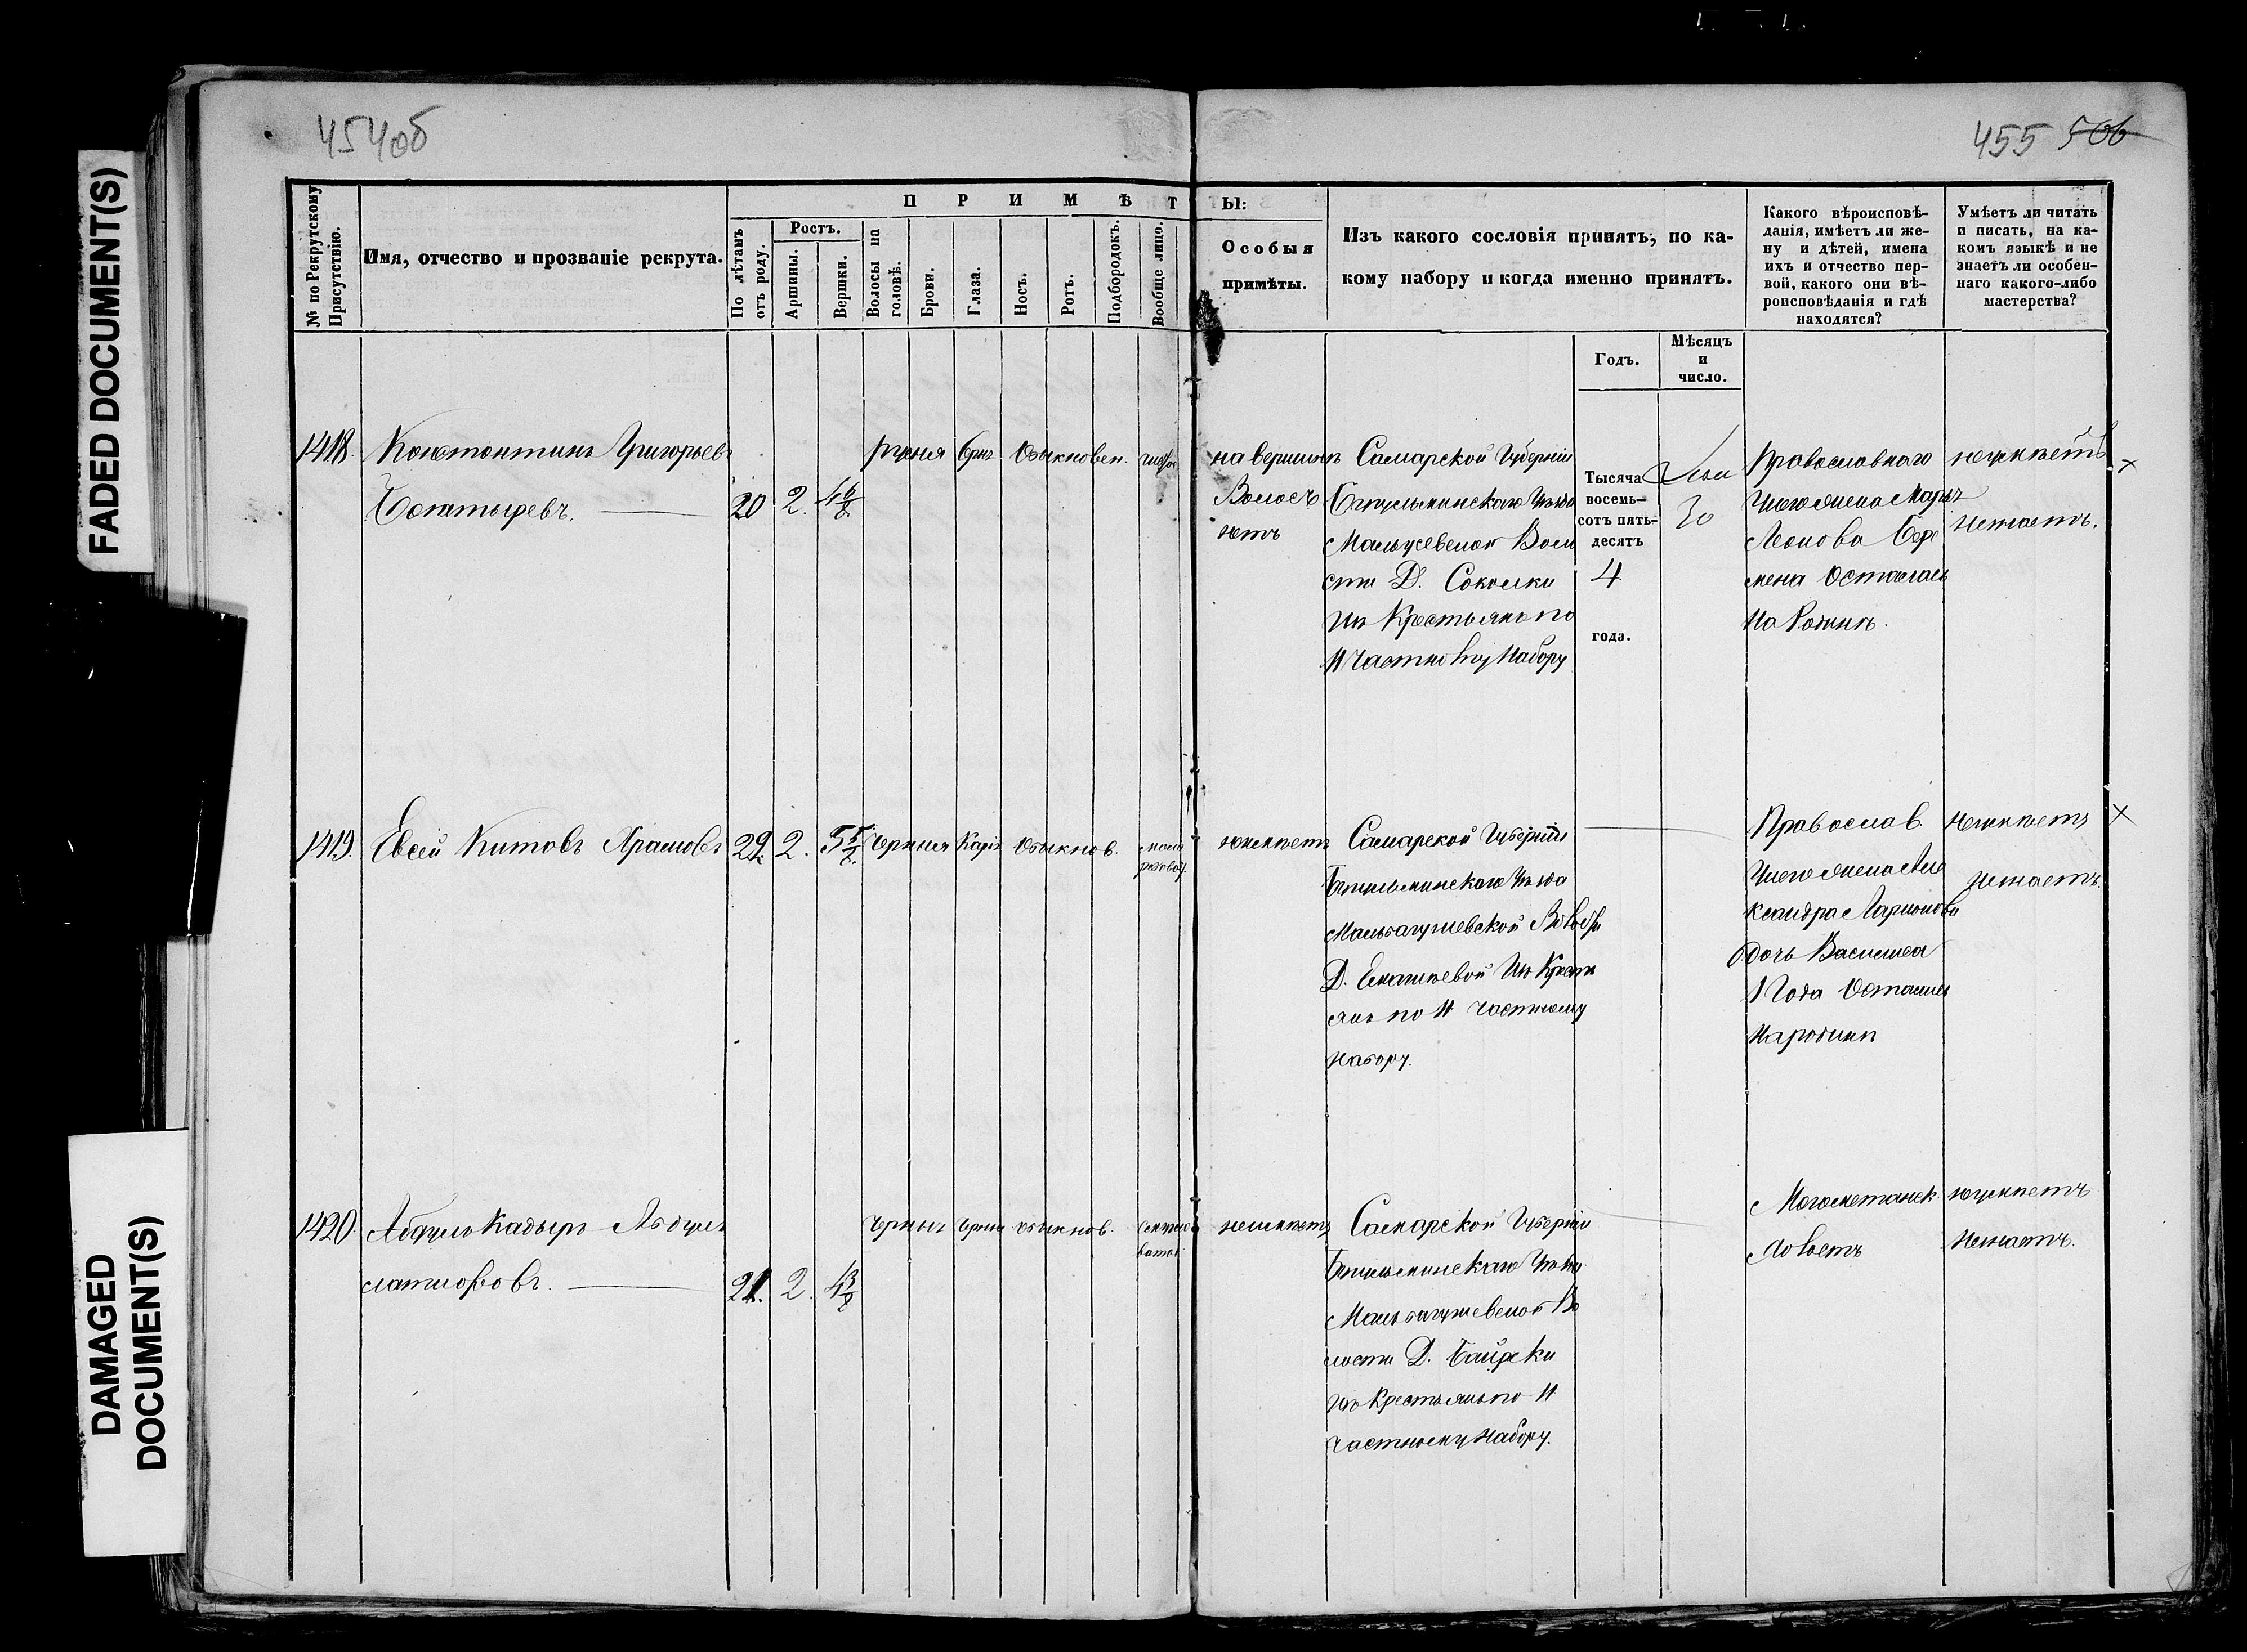 454об
455 506
FADED DOCUMENT(S)
DAMAGED
DOCUMENT(S)
П Р И М Ѣ Т Ы:
№ по Рекрутскому
Присутствію.
Имя, отчество и прозваніе рекрута.
По лѣтамъ
отъ роду.
Ростъ.
Аршины.
Вершки.
Волосы на
головѣ.
Брови.
Глаза.
Носъ.
Ротъ.
Подбородокъ.
Вообще лицо.
Особыя
примѣты.
Изъ какого сословія принятъ, по ка-
кому набору и когда именно принятъ.
Какого вѣроисповѣ-
данія, имѣетъ ли же-
ну и дѣтей, имена
ихъ и отчество пер-
вой, какого они вѣ-
роисповѣданія и гдѣ
находятся?
Умѣетъ ли читать
и писать, на ка-
комъ языкѣ и не
знаетъ ли особен-
наго какого-либо
мастерства?
Годъ.
Мѣсяцъ
и
число.
1418.
Константинъ Григорьевъ
Богатыревъ.
20 2. 4 6/8
Обыкновен.
на вершинѣ
Волосъ
нѣтъ
Самарской Губерніи
Бугульминскаго Уѣзда
сти Д. Соколки
Изъ Крестьянъ по
11 Частному Набору
Тысяча
восемь-
сотъ пять-
десять
4
года.
30
Православнаго
У него жена Марья
Леонова
Осталась
На Родинѣ.
неумѣетъ
Незнаетъ.
×
1419.
Евсей Титовъ Храмовъ
22. 2. 5 5/8
Черныя Каріе Обыкнов.
неимѣетъ
Самарской Губерніи
Бугульминскаго Уѣзда
Д. Емашевой Изъ Кресть
янъ по 11 Частному
Набору.
Православ.
У него жена Але
ксандра Ларионова
дочь Василиса
1 Года Остались
На родинѣ
Неумѣетъ
Незнаетъ.
×
1420.
Абдулъ Кадыръ Абдул
латиповъ.
21. 2. 4 3/8
Черныя Черныя Обыкнов.
неимѣетъ
Самарской Губерніи
Бугульминскаго Уѣзда
лости Д. Байряки
Изъ Крестьянъ по 11
Частному Набору.
Магометанск
Холостъ
неумѣетъ
Незнаетъ.